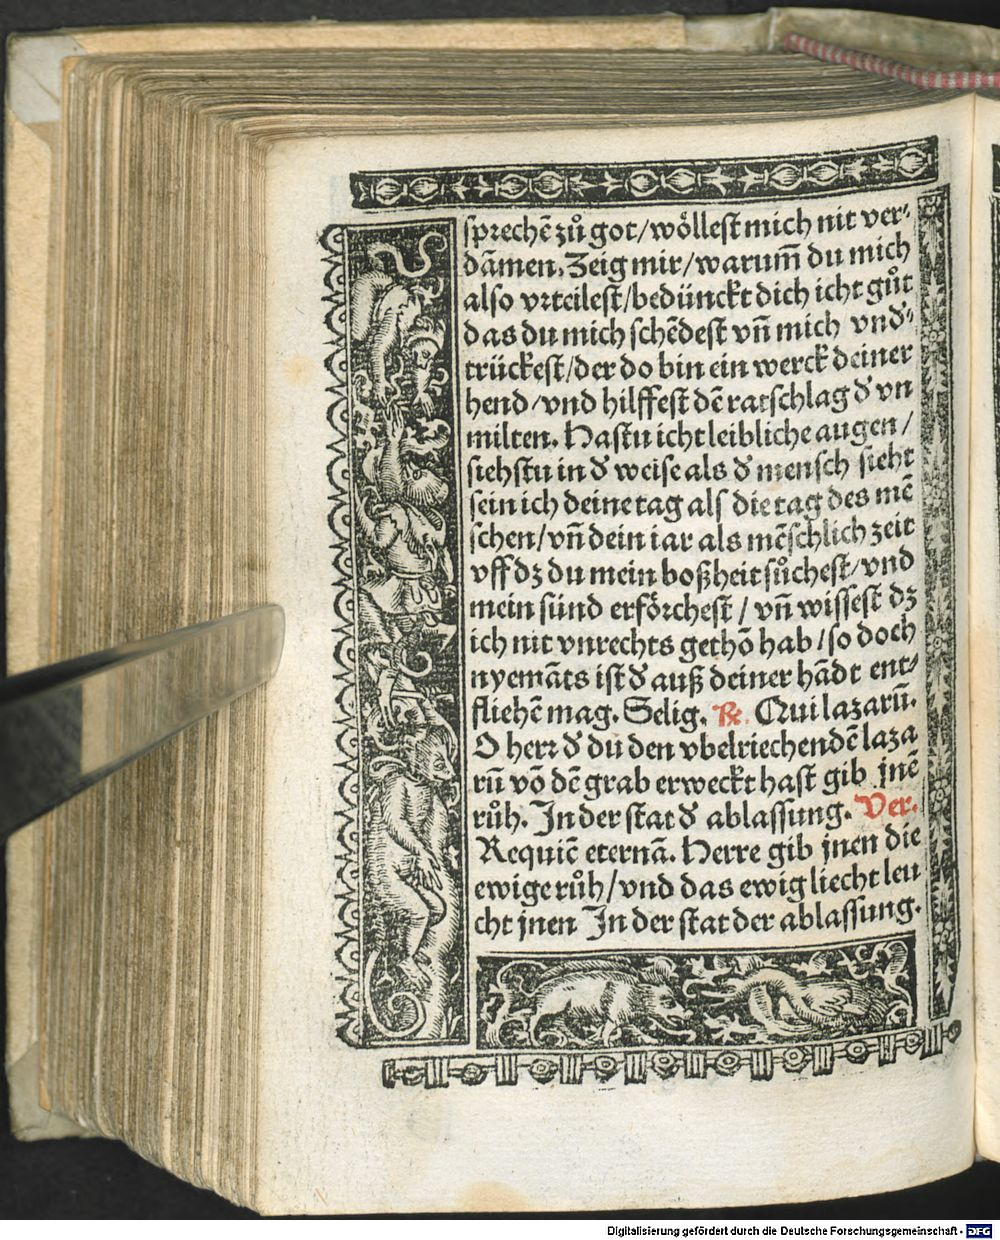 sprechē zů got/wöllest mich nit ver⸗
dāmen. Zeig mir/warum̄ du mich
also vrteilest/bedünckt dich icht gůt
das du mich schēdest vn̄ mich vnd⸗
trückest/der do bin ein werck deiner
hend/vnd hilffest dē ratschlag đ vn
milten. Hastu icht leibliche augen/
siehstu in đ weise als đ mensch sieht
sein ich deine tag als die tag des mē
schen/vn̄ dein iar als mēschlich zeit
vff dz du mein boßheit sůchest/vnd
mein sünd erförchest/vn̄ wissest dz
ich nit vnrechts gethō hab/so doch
nyemāts ist đ auß deiner hādt ent⸗
fliehē mag. Selig. ℞. Qui lazarū.
O herr đ du den vbelriechendē laza
rū vō dē grab erweckt hast gib jnē
růh. In der stat đ ablassung. Ver.
Requiē eternā. Herre gib jnen die
ewige růh/vnd das ewig liecht leu
cht jnen In der stat der ablassung.
Digitalisierung gefördert durch die Deutsche Forschungsgemeinschaft - DFG